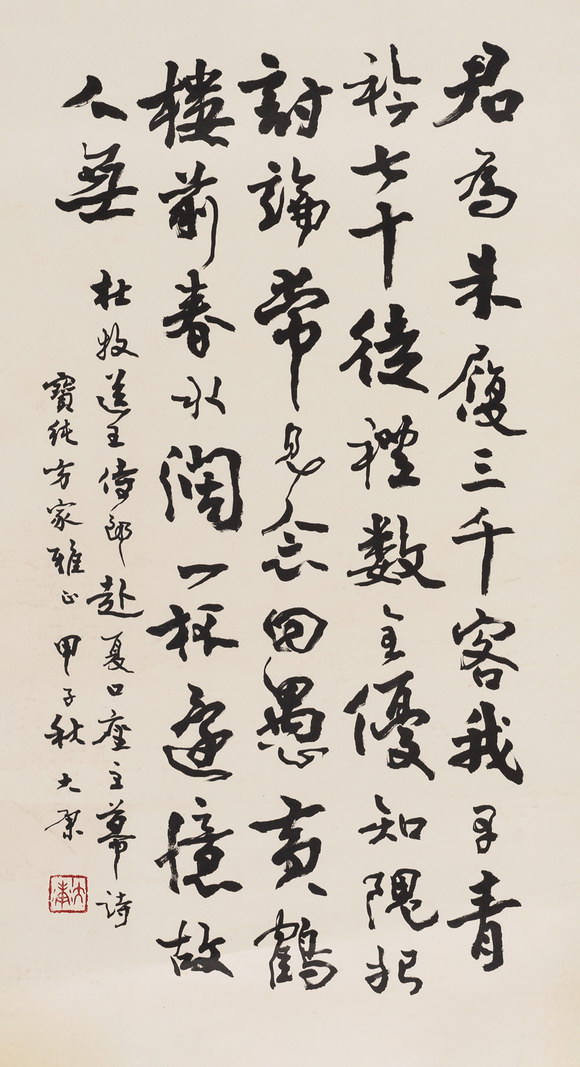 君為朱履三千客我是青
衿七十徒禮數全優知隗始
討論常見念回愚黃鶴
樓前春水闊一杯還憶故
人無
杜牧送王侍郎赴夏口座主幕詩
寶純方家雅正 甲子秋 大康